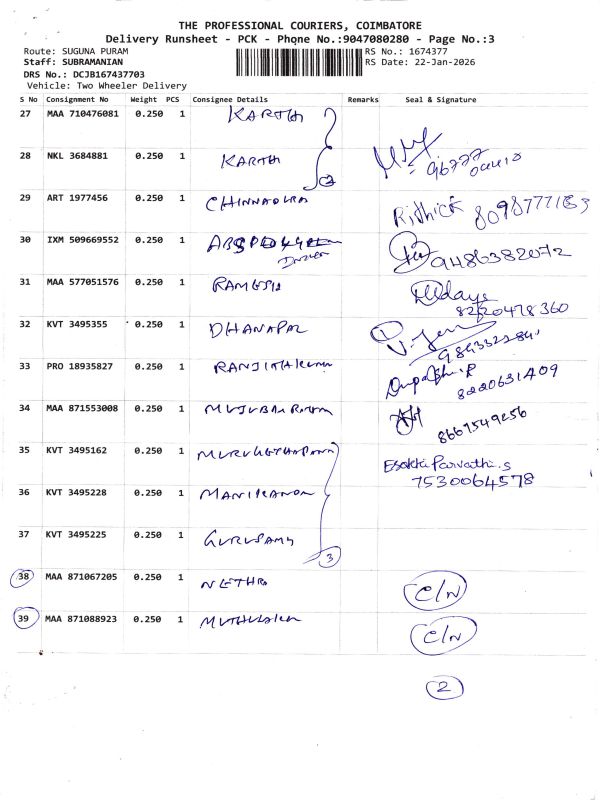 THE PROFESSIONAL COURIERS, COIMBATORE
Delivery Runsheet - PCK - Phone No.:9047080280 - Page No.:3
Route: SUGUNA PURAM RS No.: 1674377
Staff: SUBRAMANIAN RS Date: 22-Jan-2026
DRS No.: DCJB167437703
Vehicle: Two Wheeler Delivery
S No Consignment No Weight PCS Consignee Details Remarks Seal & Signature
27 MAA 710476081 0.250 1 KARTHI
28 NKL 3684881 0.250 1 KARTHI
2
29 ART 1977456 0.250 1 CHINNADURA Rithick 8098777183
30 IXM 509669552 0.250 1 9486382072
31 MAA 577051576 0.250 1 RAMESH Udaya
8220478360
32 KVT 3495355 0.250 1 DHANAPAL
33 PRO 18935827 0.250 1 RANJITHKUMAR
8220631409
34 MAA 871553008 0.250 1 MUJUBAR
8667549256
35 KVT 3495162 0.250 1 Esakki Parvathi.S
7530064578
36 KVT 3495228 0.250 1 MANIKANDAN
37 KVT 3495225 0.250 1 GURUSAMY
3
38 MAA 871067205 0.250 1 NETHRA C/N
39 MAA 871088923 0.250 1 C/N
2